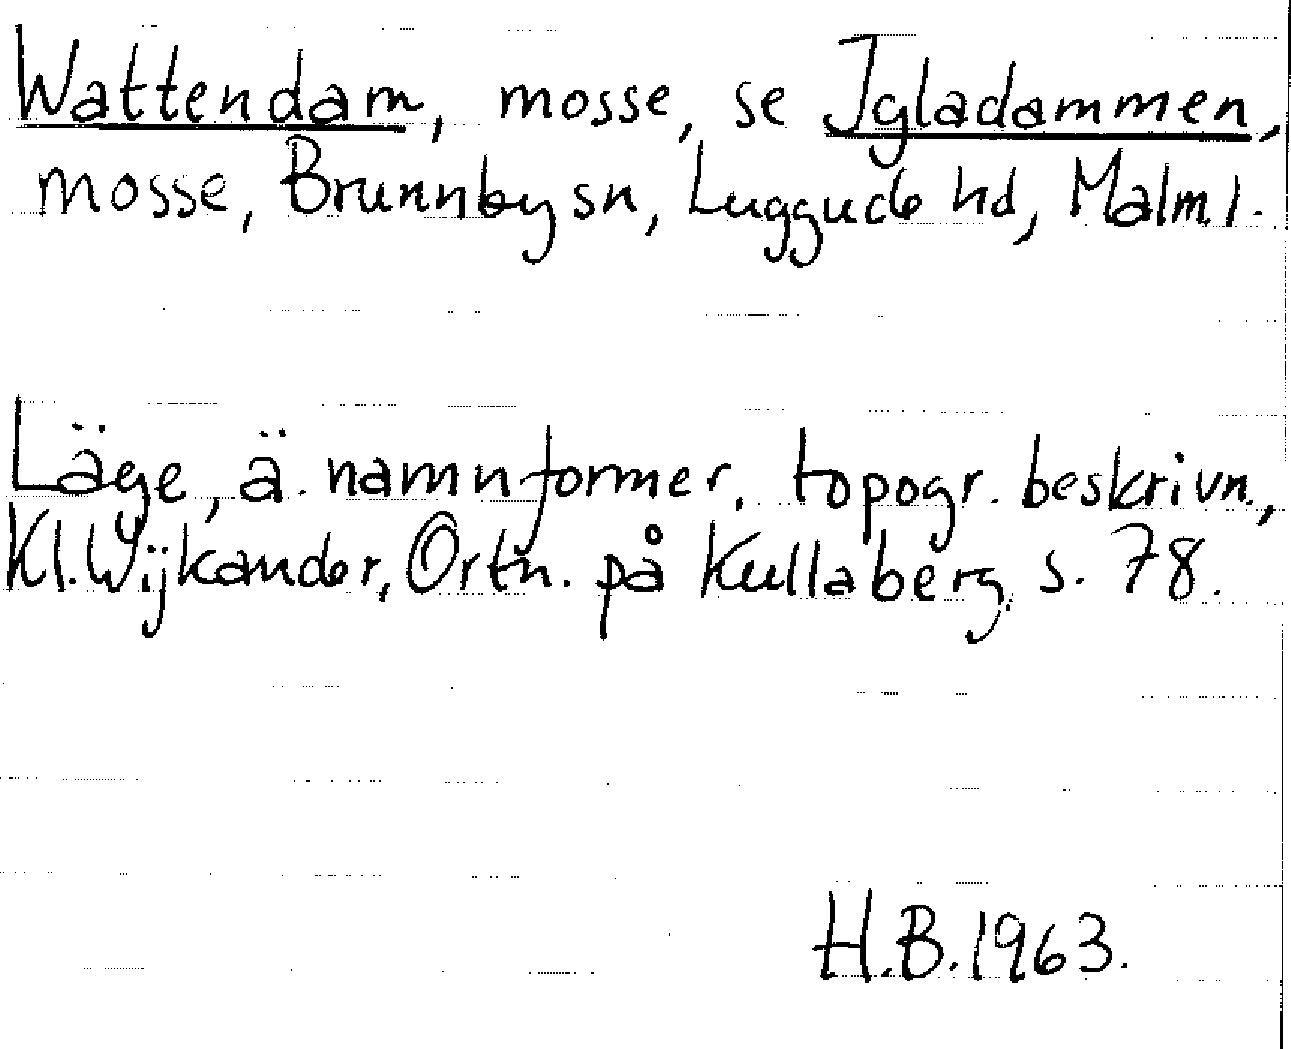 Wattendam, mosse, se Igladammen,
mosse, Brunnby sn, Luggude hd, Malm l.
Läge, ä. namnformer, topogr. beskrivn.,
Kl. Wijkander, Ortn. på Kullaberg, s. 78.
H.B. 1963.